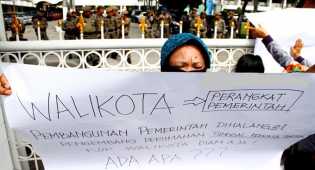 WALIKOTA → PERANGKAT
PEMERINTAH
PEMBANGUNAN PEMERINTAH DIHALANGI
PENGEMBANG PERUMAHAN
KOK WALIKOTA DIAM
ADA APA ???